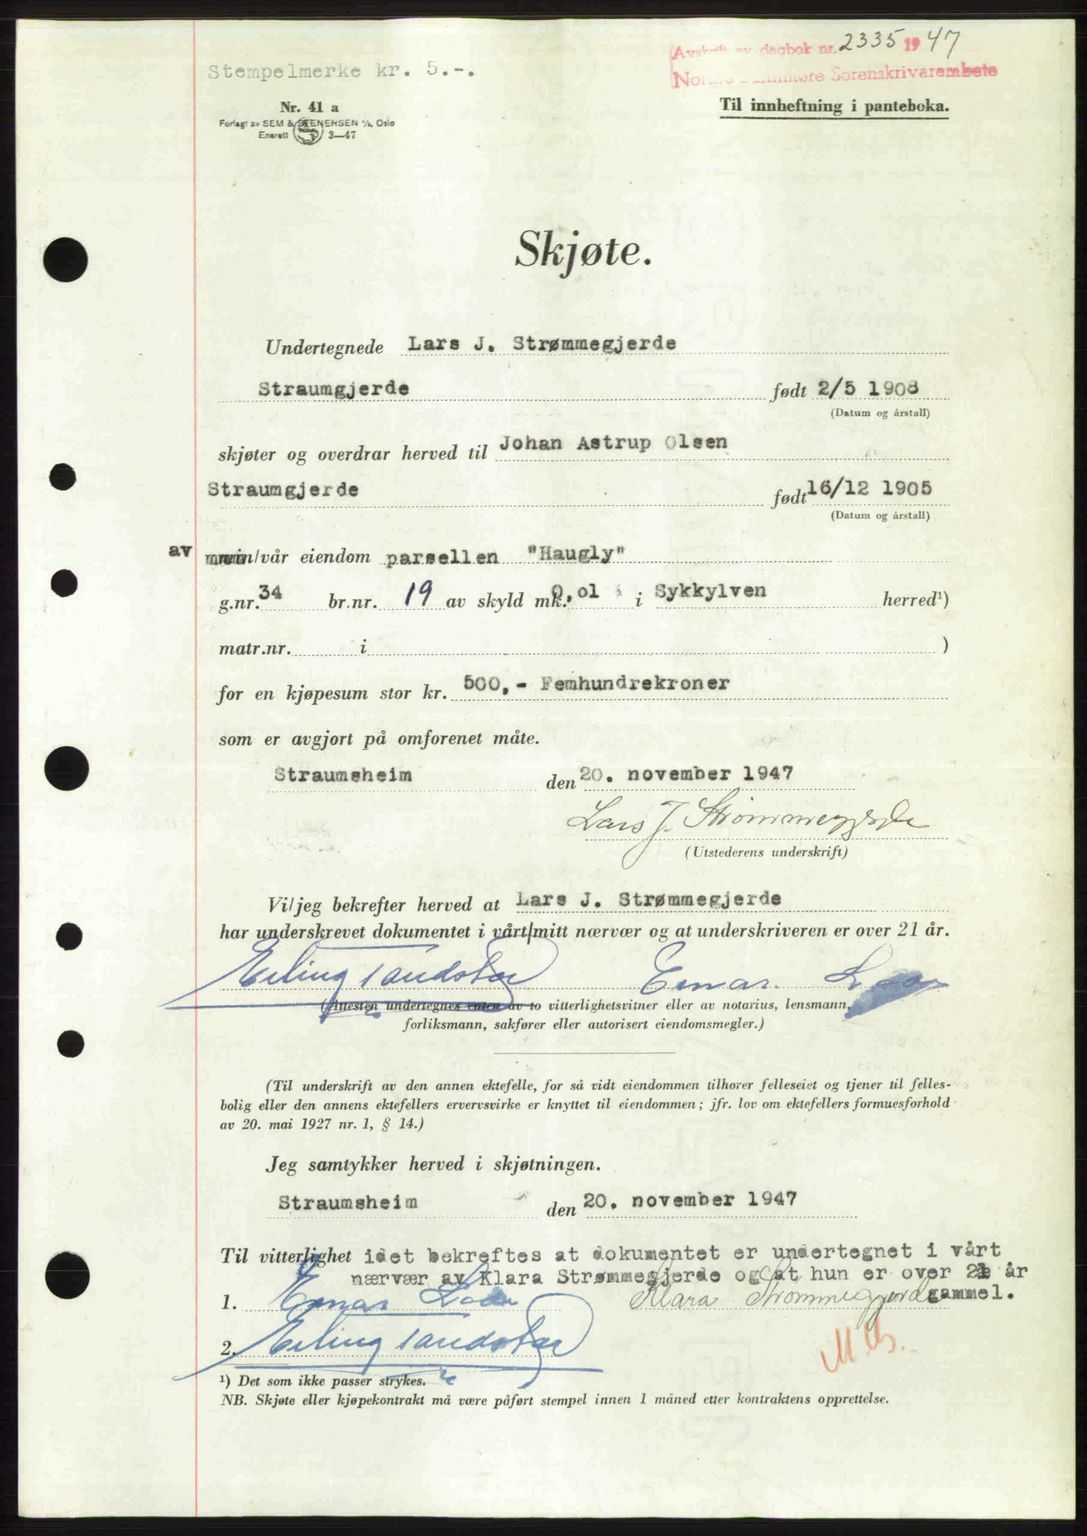 Avskrift av dagbok nr. 2335 1947
Stempelmerke kr. 5.-.
Nordre Sunnmøre Sorenskrivarembete
Nr. 41 a
Til innheftning i panteboka.
Forlagt av SEM & STENERSEN A/S, Oslo
Enerett 3—47
Skjøte.
Undertegnede Lars J. Strømmegjerde
Straumgjerde født 2/5 1908
(Datum og årstall)
skjøter og overdrar herved til Johan Astrup Olsen
Straumgjerde født 16/12 1905
(Datum og årstall)
av min/vår eiendom parsellen "Haugly"
g.nr. 34 br.nr. 19 av skyld mk. 0,01 i Sykkylven herred¹)
matr.nr. i )
for en kjøpesum stor kr. 500,- Femhundrekroner
som er avgjort på omforenet måte.
Straumsheim den 20. november 1947
Lars J. Strømmegjerde
(Utstederens underskrift)
Vi/jeg bekrefter herved at Lars J. Strømmegjerde
har underskrevet dokumentet i vårt/mitt nærvær og at underskriveren er over 21 år.
Erling Tandstad Einar
(Attesten undertegnes enten av to vitterlighetsvitner eller av notarius, lensmann,
forliksmann, sakfører eller autorisert eiendomsmegler.)
(Til underskrift av den annen ektefelle, for så vidt eiendommen tilhører felleseiet og tjener til felles-
bolig eller den annens ektefellers ervervsvirke er knyttet til eiendommen; jfr. lov om ektefellers formuesforhold
av 20. mai 1927 nr. 1, § 14.)
Jeg samtykker herved i skjøtningen.
Straumsheim den 20. november 1947
Til vitterlighet idet bekreftes at dokumentet er undertegnet i vårt
nærvær av Klara Strømmegjerde og at hun er over 21 år
gammel.
1. Einar Klara Strømmegjerde
2. Erling Tandstad
¹) Det som ikke passer strykes.
NB. Skjøte eller kjøpekontrakt må være påført stempel innen 1 måned etter kontraktens opprettelse.